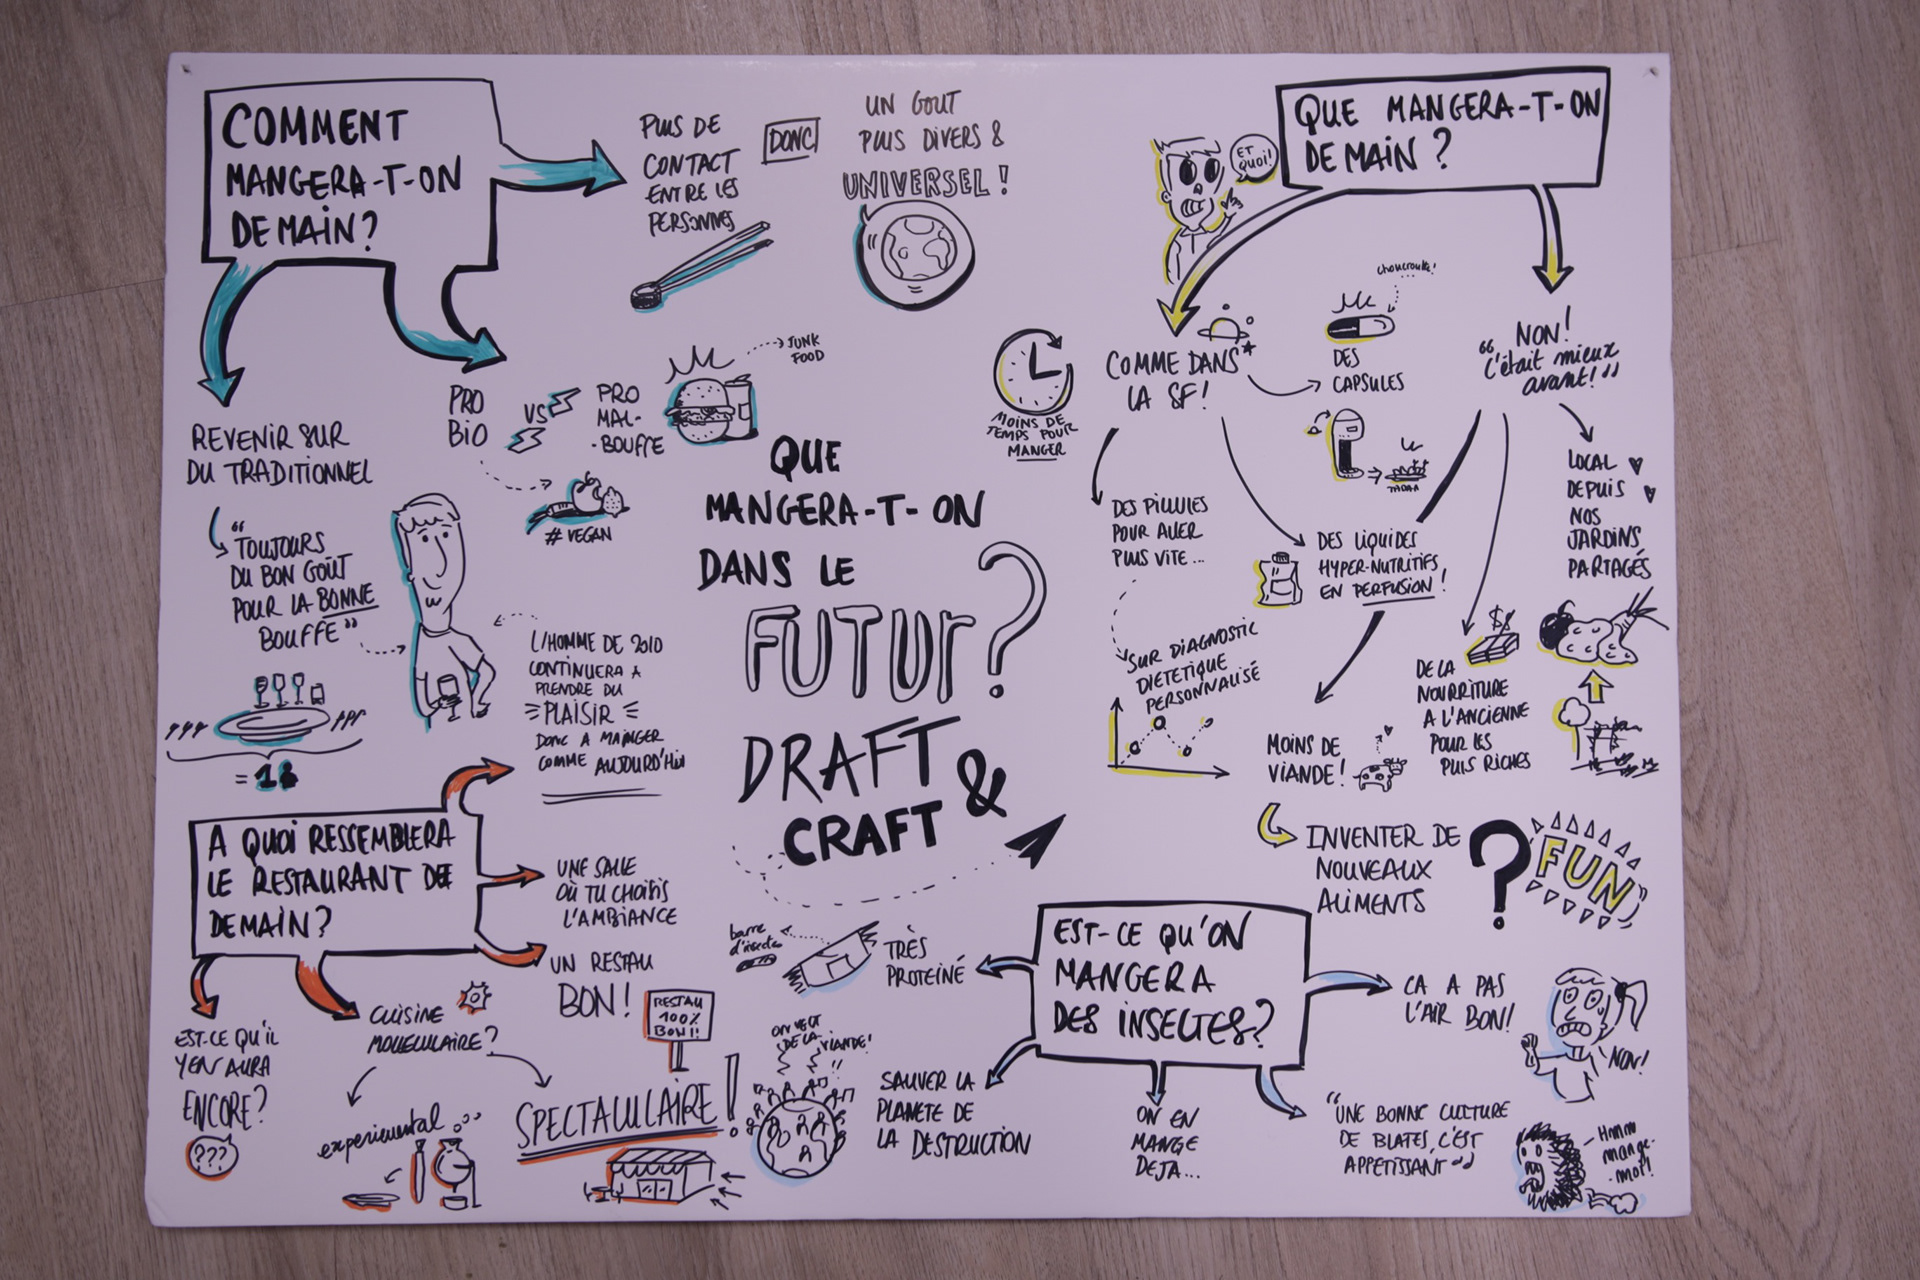 COMMENT
MANGERA-T-ON
DEMAIN?
PLUS DE
CONTACT
ENTRE LES
PERSONNES
DONC
UN GOUT
PLUS DIVERS &
UNIVERSEL!
REVENIR SUR
DU TRADITIONNEL
"TOUJOURS
DU BON GOÛT
POUR LA BONNE
BOUFFE"
= 1
PRO
BIO
VS
PRO
MAL-
-BOUFFE
JUNK
FOOD
# VEGAN
L'HOMME DE 2010
CONTINUERA A
PRENDRE DU
PLAISIR
DONC A MANGER
COMME AUJOURD'HUI
QUE
MANGERA-T-ON
DANS LE
FUTUR?
DRAFT
&
CRAFT
QUE MANGERA-T-ON
DEMAIN?
ET
QUOI!
COMME DANS*
LA SF!
MOINS DE
TEMPS POUR
MANGER
choucroute!
DES
CAPSULES
TADAA
DES PILLULES
POUR ALLER
PLUS VITE...
SUR DIAGNOSTIC
DIETETIQUE
PERSONNALISÉ
DES LIQUIDES
HYPER-NUTRITIFS
EN PERFUSION!
NON!
"C'était mieux
avant!"
LOCAL
DEPUIS
NOS
JARDINS
PARTAGÉS
$
DE LA
NOURRITURE
A L'ANCIENNE
POUR LES
PLUS RICHES
MOINS DE
VIANDE!
INVENTER DE
NOUVEAUX
ALIMENTS
?
FUN
A QUOI RESSEMBLERA
LE RESTAURANT DE
DEMAIN?
UNE SALLE
OÙ TU CHOISIS
L'AMBIANCE
UN RESTAU
BON!
RESTAU
100%
BON!!
EST-CE QU'IL
Y EN AURA
ENCORE?
???
CUISINE
MOLECULAIRE?
experimental
SPECTACULAIRE!
EST-CE QU'ON
MANGERA
DES INSECTES?
TRÈS
PROTEINÉ
barre
d'insectes
SAUVER LA
PLANETE DE
LA DESTRUCTION
ON VEUT
DE LA VIANDE!
!!
ON EN
MANGE
DEJA...
CA A PAS
L'AIR BON!
NON!
"UNE BONNE CULTURE
DE BLATES, C'EST
APPETISSANT"
Hmm
mange-
-moi!